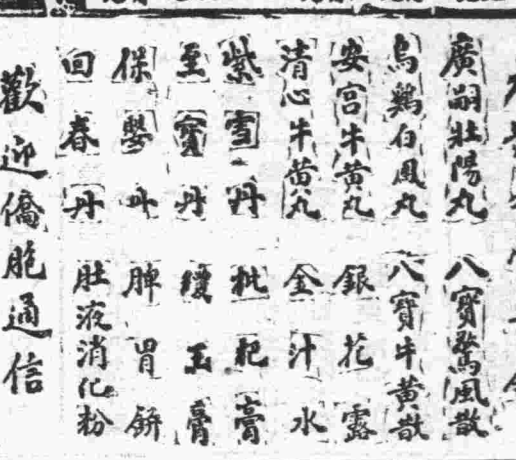 廣嗣壯陽丸 八寶驚風散
烏鷄白鳳丸 八寶牛黄散
安宮牛黄丸 銀花露
清心牛黄丸 金汁水
紫雪丹 枇杷膏
至寶丹 瓊玉膏
保嬰丹 脾胃餅
回春丹 肚液消化粉
歡迎僑胞通信